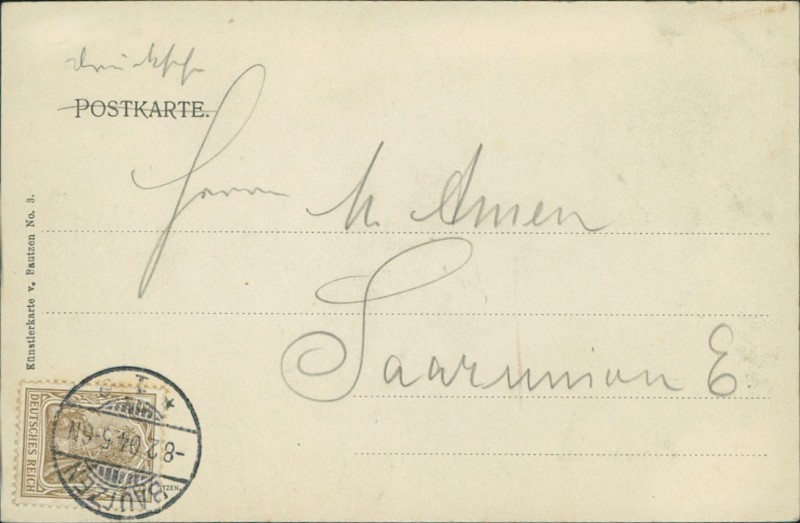 Drucksache
POSTKARTE.
Herrn M. Amen
Saarunion E.
Künstlerkarte v. Bautzen No. 3.
DEUTSCHES REICH
BAUTZEN
-8.2.04.5-6N.
* 1
TZEN.